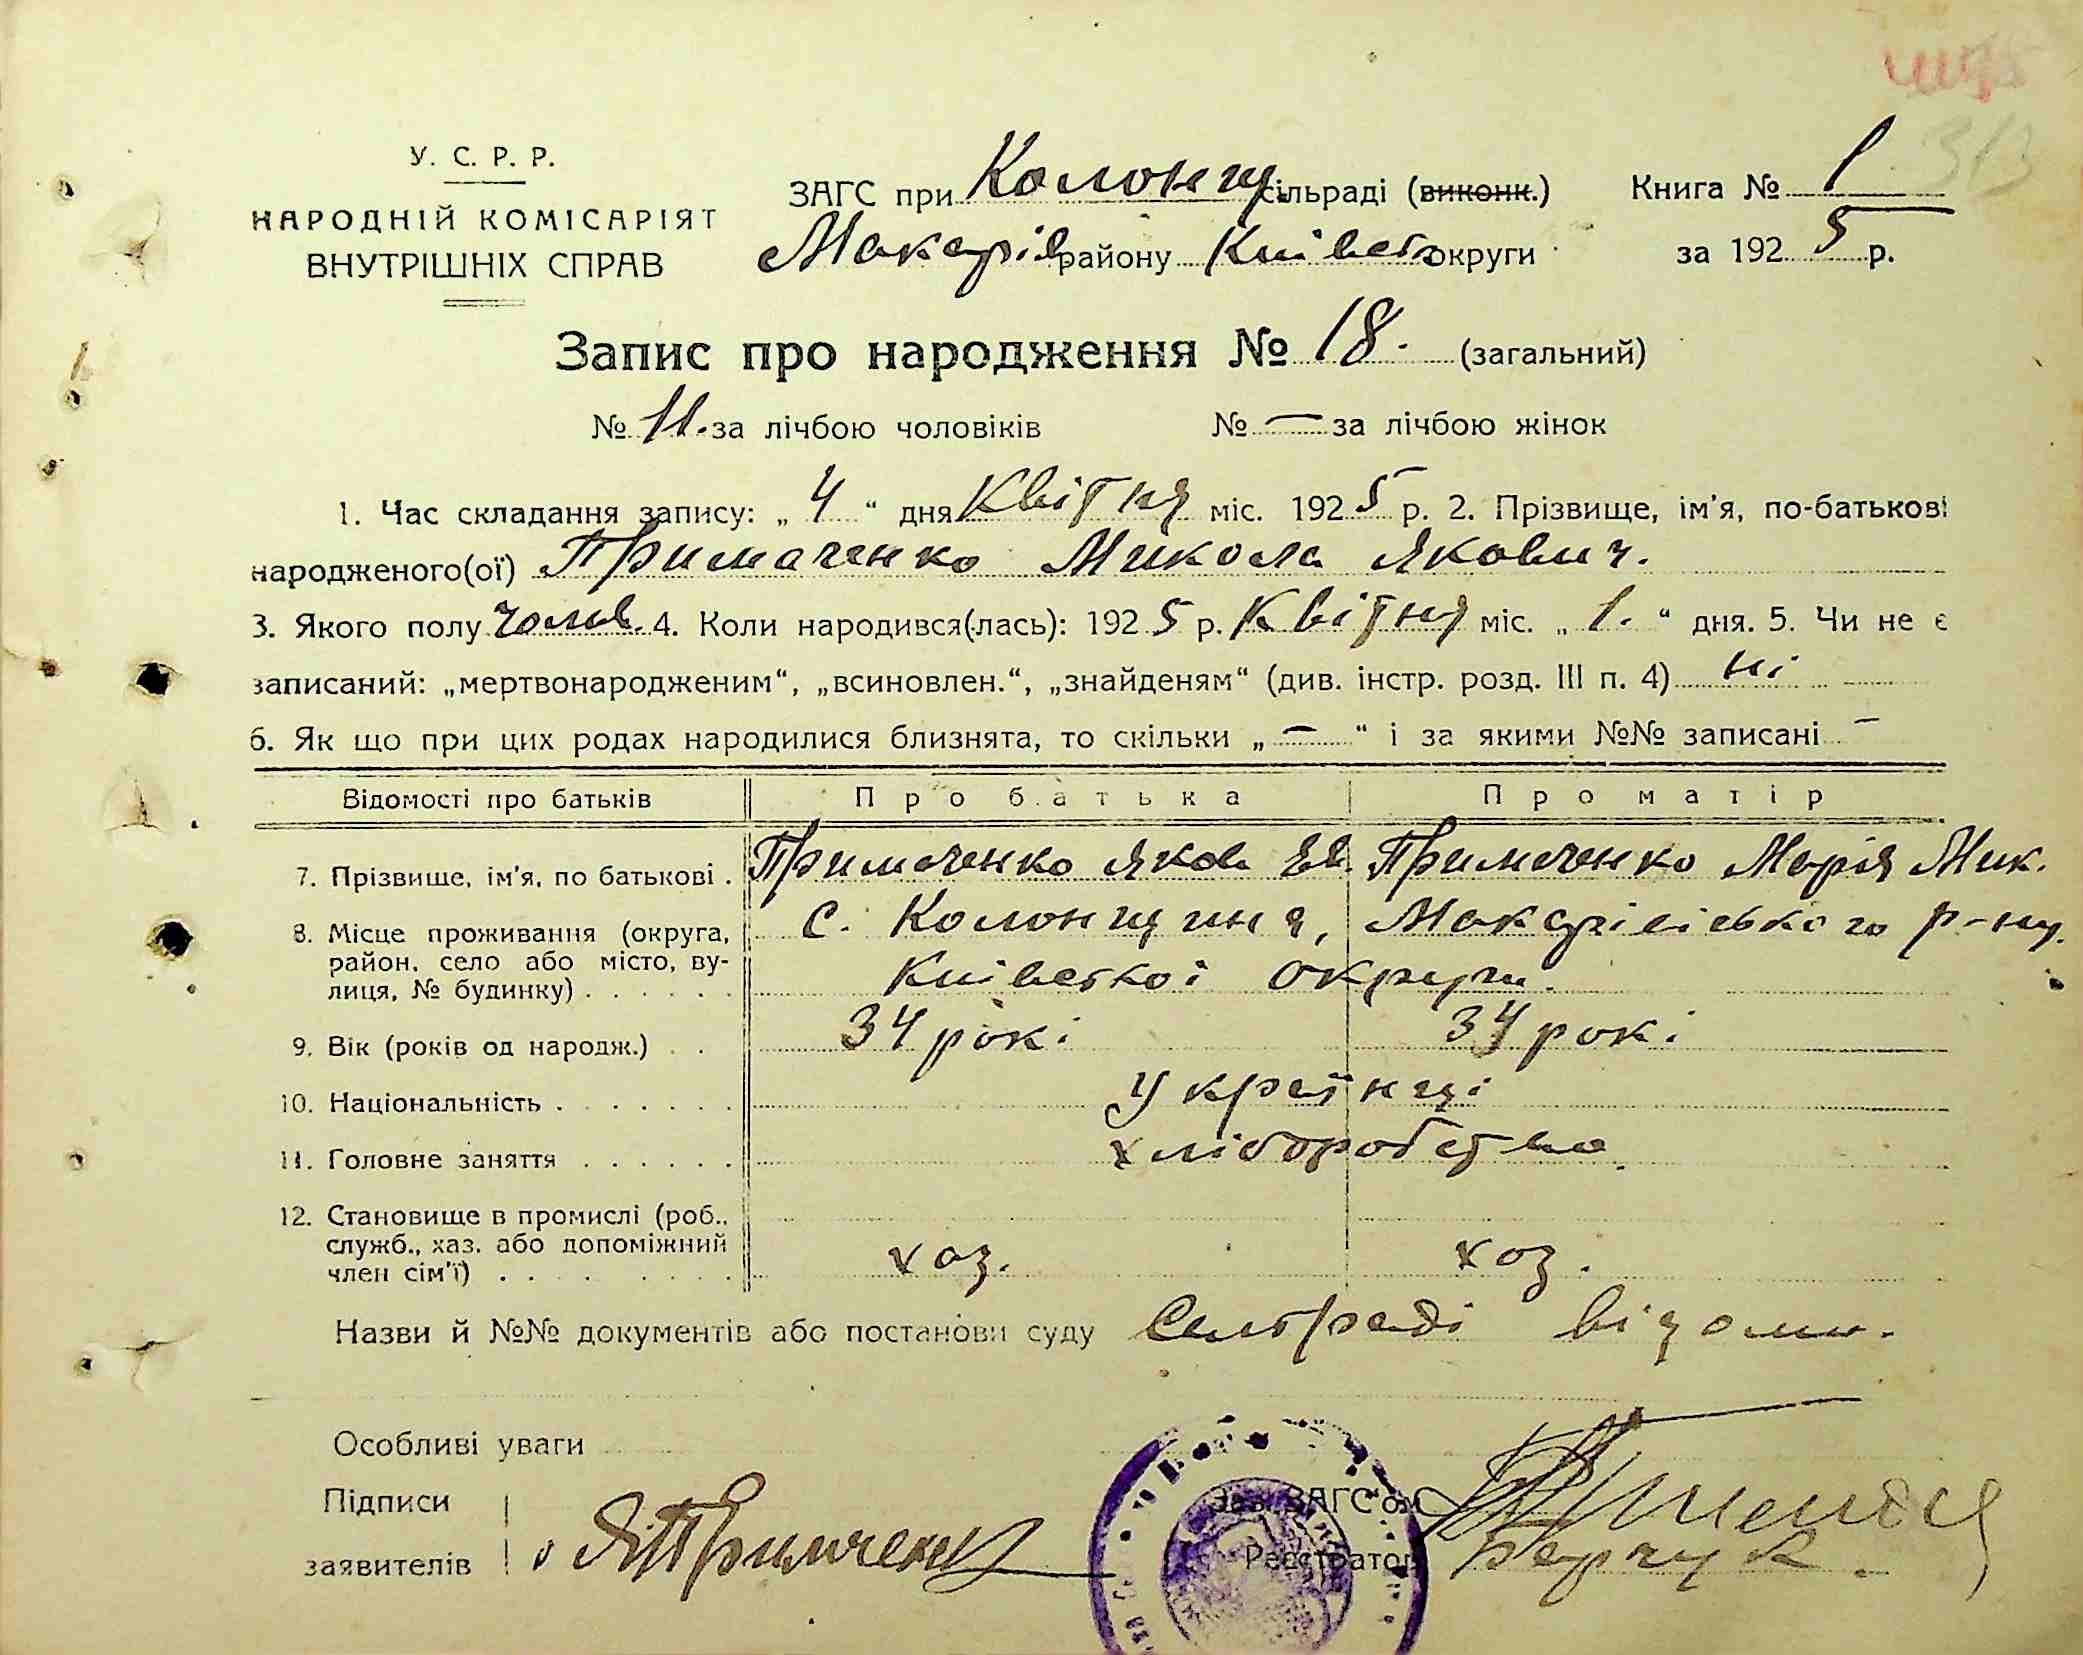 313
У. С. Р. Р.
НАРОДНІЙ КОМІСАРІЯТ
ВНУТРІШНІХ СПРАВ
ЗАГС при Колонщ. сільраді (виконк.) Книга № 1
Макарів району Київськ округи за 1925 р.
Запис про народження № 18. (загальний)
№ 11. за лічбою чоловіків № — за лічбою жінок
1. Час складання запису: „ 4 “ дня Квітня міс. 1925 р. 2. Прізвище, ім'я, по-батькові
народженого(ої) Примаченко Микола Якович.
3. Якого полу Чолов. 4. Коли народився(лась): 1925 р. Квітня міс. „ 1. “ дня. 5. Чи не є
записаний: „мертвонародженим“, „всиновлен.“, „знайденям“ (див. інстр. розд. III п. 4) ні
6. Як що при цих родах народилися близнята, то скільки „ — “ і за якими №№ записані —
Відомості про батьків Про батька Про матір
7. Прізвище, ім'я, по батькові . Примаченко Яков Примаченко Марія Мик.
8. Місце проживання (округа, с. Колонщина, Макарівського р-ну.
район, село або місто, ву-
лиця, № будинку) . . . . . . Київської округи.
9. Вік (років од народж.) . . 34 рокі 34 рокі
10. Національність . . . . . . . Українці
11. Головне заняття . . . . . . Хліборобство.
12. Становище в промислі (роб.,
служб., хаз. або допоміжний хоз. хоз.
член сім'ї) . . . . . . . .
Назви й №№ документів або постанови суду Сельраді відоми.
Особливі уваги
Підписи Зав. ЗАГС'ом
заявителів Я Примаченко Реєстратор